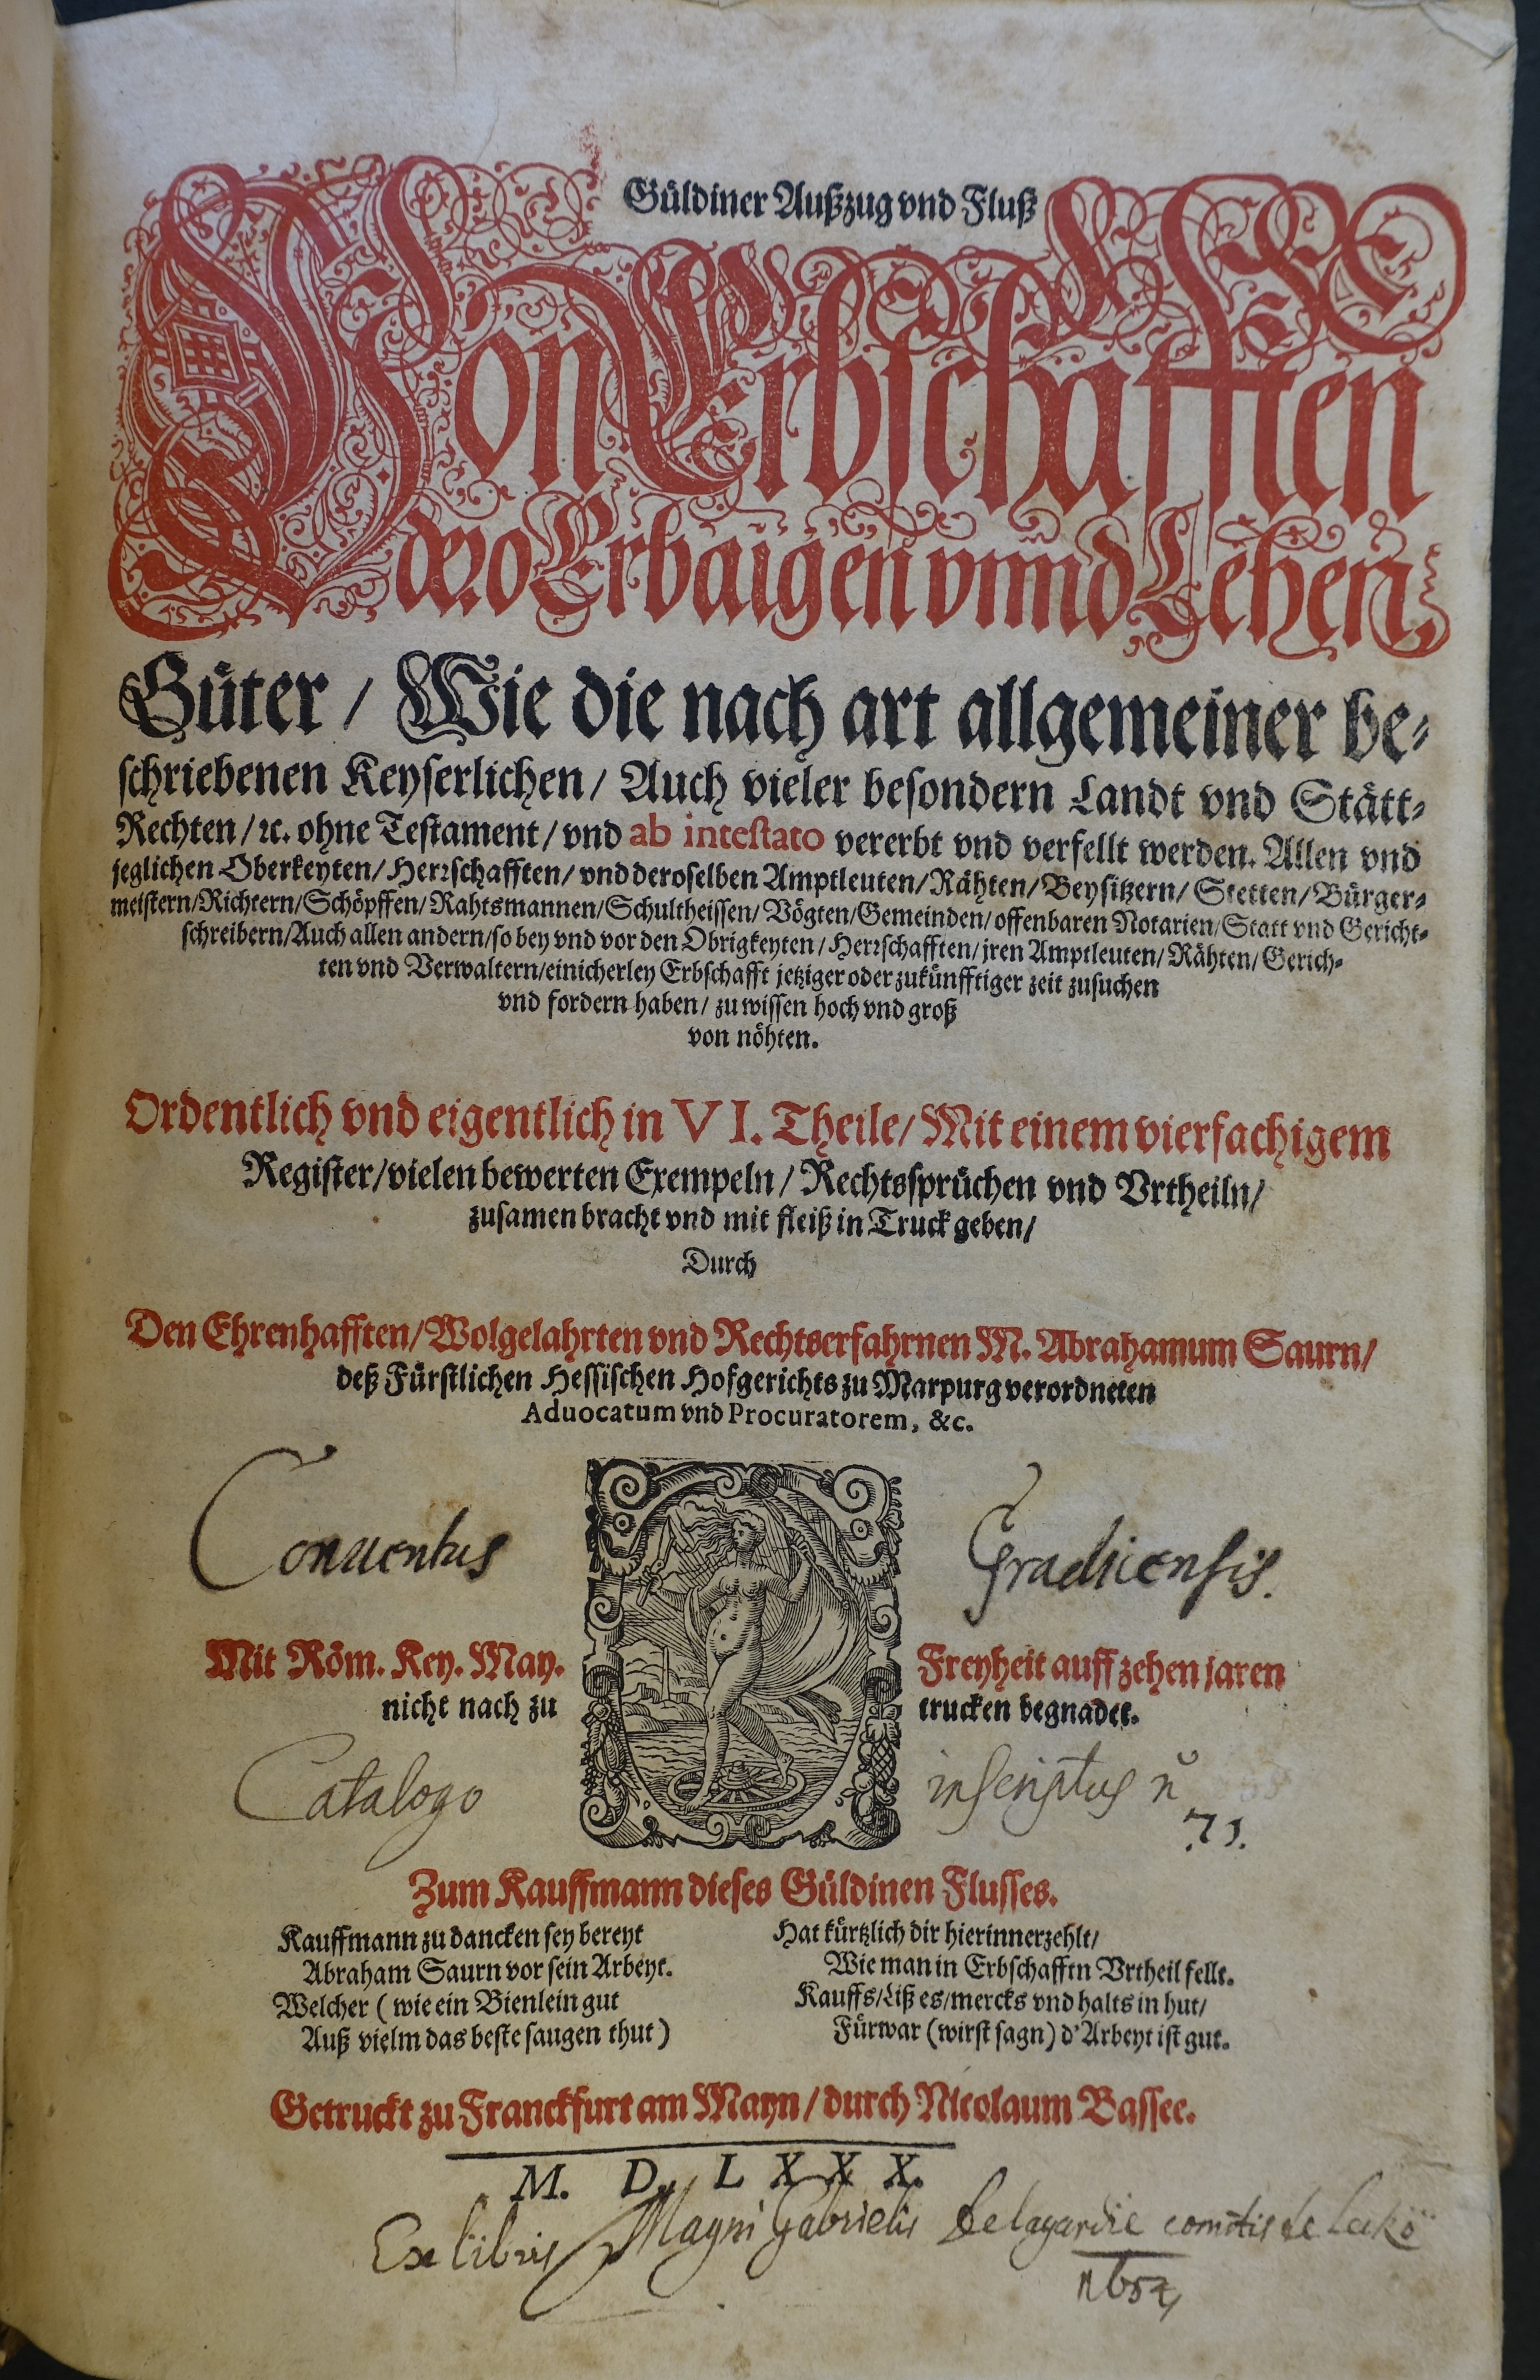 Güldiner Außzug vnd Fluß
Von Erbschafften
dero Erbaigen vnnd Lehen
Güter / Wie die nach art allgemeiner be-
schriebenen Keyserlichen / Auch vieler besondern Landt vnd Stätt-
Rechten / ꝛc. ohne Testament / vnd ab intestato vererbt vnd verfellt werden. Allen vnd
jeglichen Oberkeyten / Herrschafften / vnd deroselben Amptleuten / Rähten / Beysitzern / Stetten / Bürger-
meistern / Richtern / Schöpffen / Rahtsmannen / Schultheissen / Vögten / Gemeinden / offenbaren Notarien / Statt vnd Gericht-
schreibern / Auch allen andern / so bey vnd vor den Obrigkeyten / Herrschafften / jren Amptleuten / Rähten / Gerich-
ten vnd Verwaltern / einicherley Erbschafft jetziger oder zukünfftiger zeit zusuchen
vnd fordern haben / zu wissen hoch vnd groß
von nöhten.
Ordentlich vnd eigentlich in VI. Theile / Mit einem vierfachigem
Register / vielen bewerten Exempeln / Rechtssprüchen vnd Vrtheiln /
zusamen bracht vnd mit fleiß in Truck geben /
Durch
Den Ehrenhafften / Wolgelahrten vnd Rechtserfahrnen M. Abrahamum Saurn /
deß Fürstlichen Hessischen Hofgerichts zu Marpurg verordneten
Aduocatum vnd Procuratorem, &c.
Conuentus Gradicensis.
Mit Röm. Key. May. Freyheit auff zehen jaren
nicht nach zu trucken begnadet.
Catalogo inscriptus n
71.
Zum Kauffmann dieses Güldinen Flusses.
Kauffmann zu dancken sey bereyt
Abraham Saurn vor sein Arbeyt.
Welcher ( wie ein Bienlein gut
Auß vielm das beste saugen thut )
Hat kürtzlich dir hierinn erzehlt /
Wie man in Erbschafftn Vrtheil fellt.
Kauffs / Liß es / mercks vnd halts in hut /
Fürwar ( wirst sagn ) d' Arbeyt ist gut.
Getruckt zu Franckfurt am Mayn / durch Nicolaum Bassee.
M. D. LXXX.
Ex libris Magni Gabrielis Delagardie comitis de Leckö